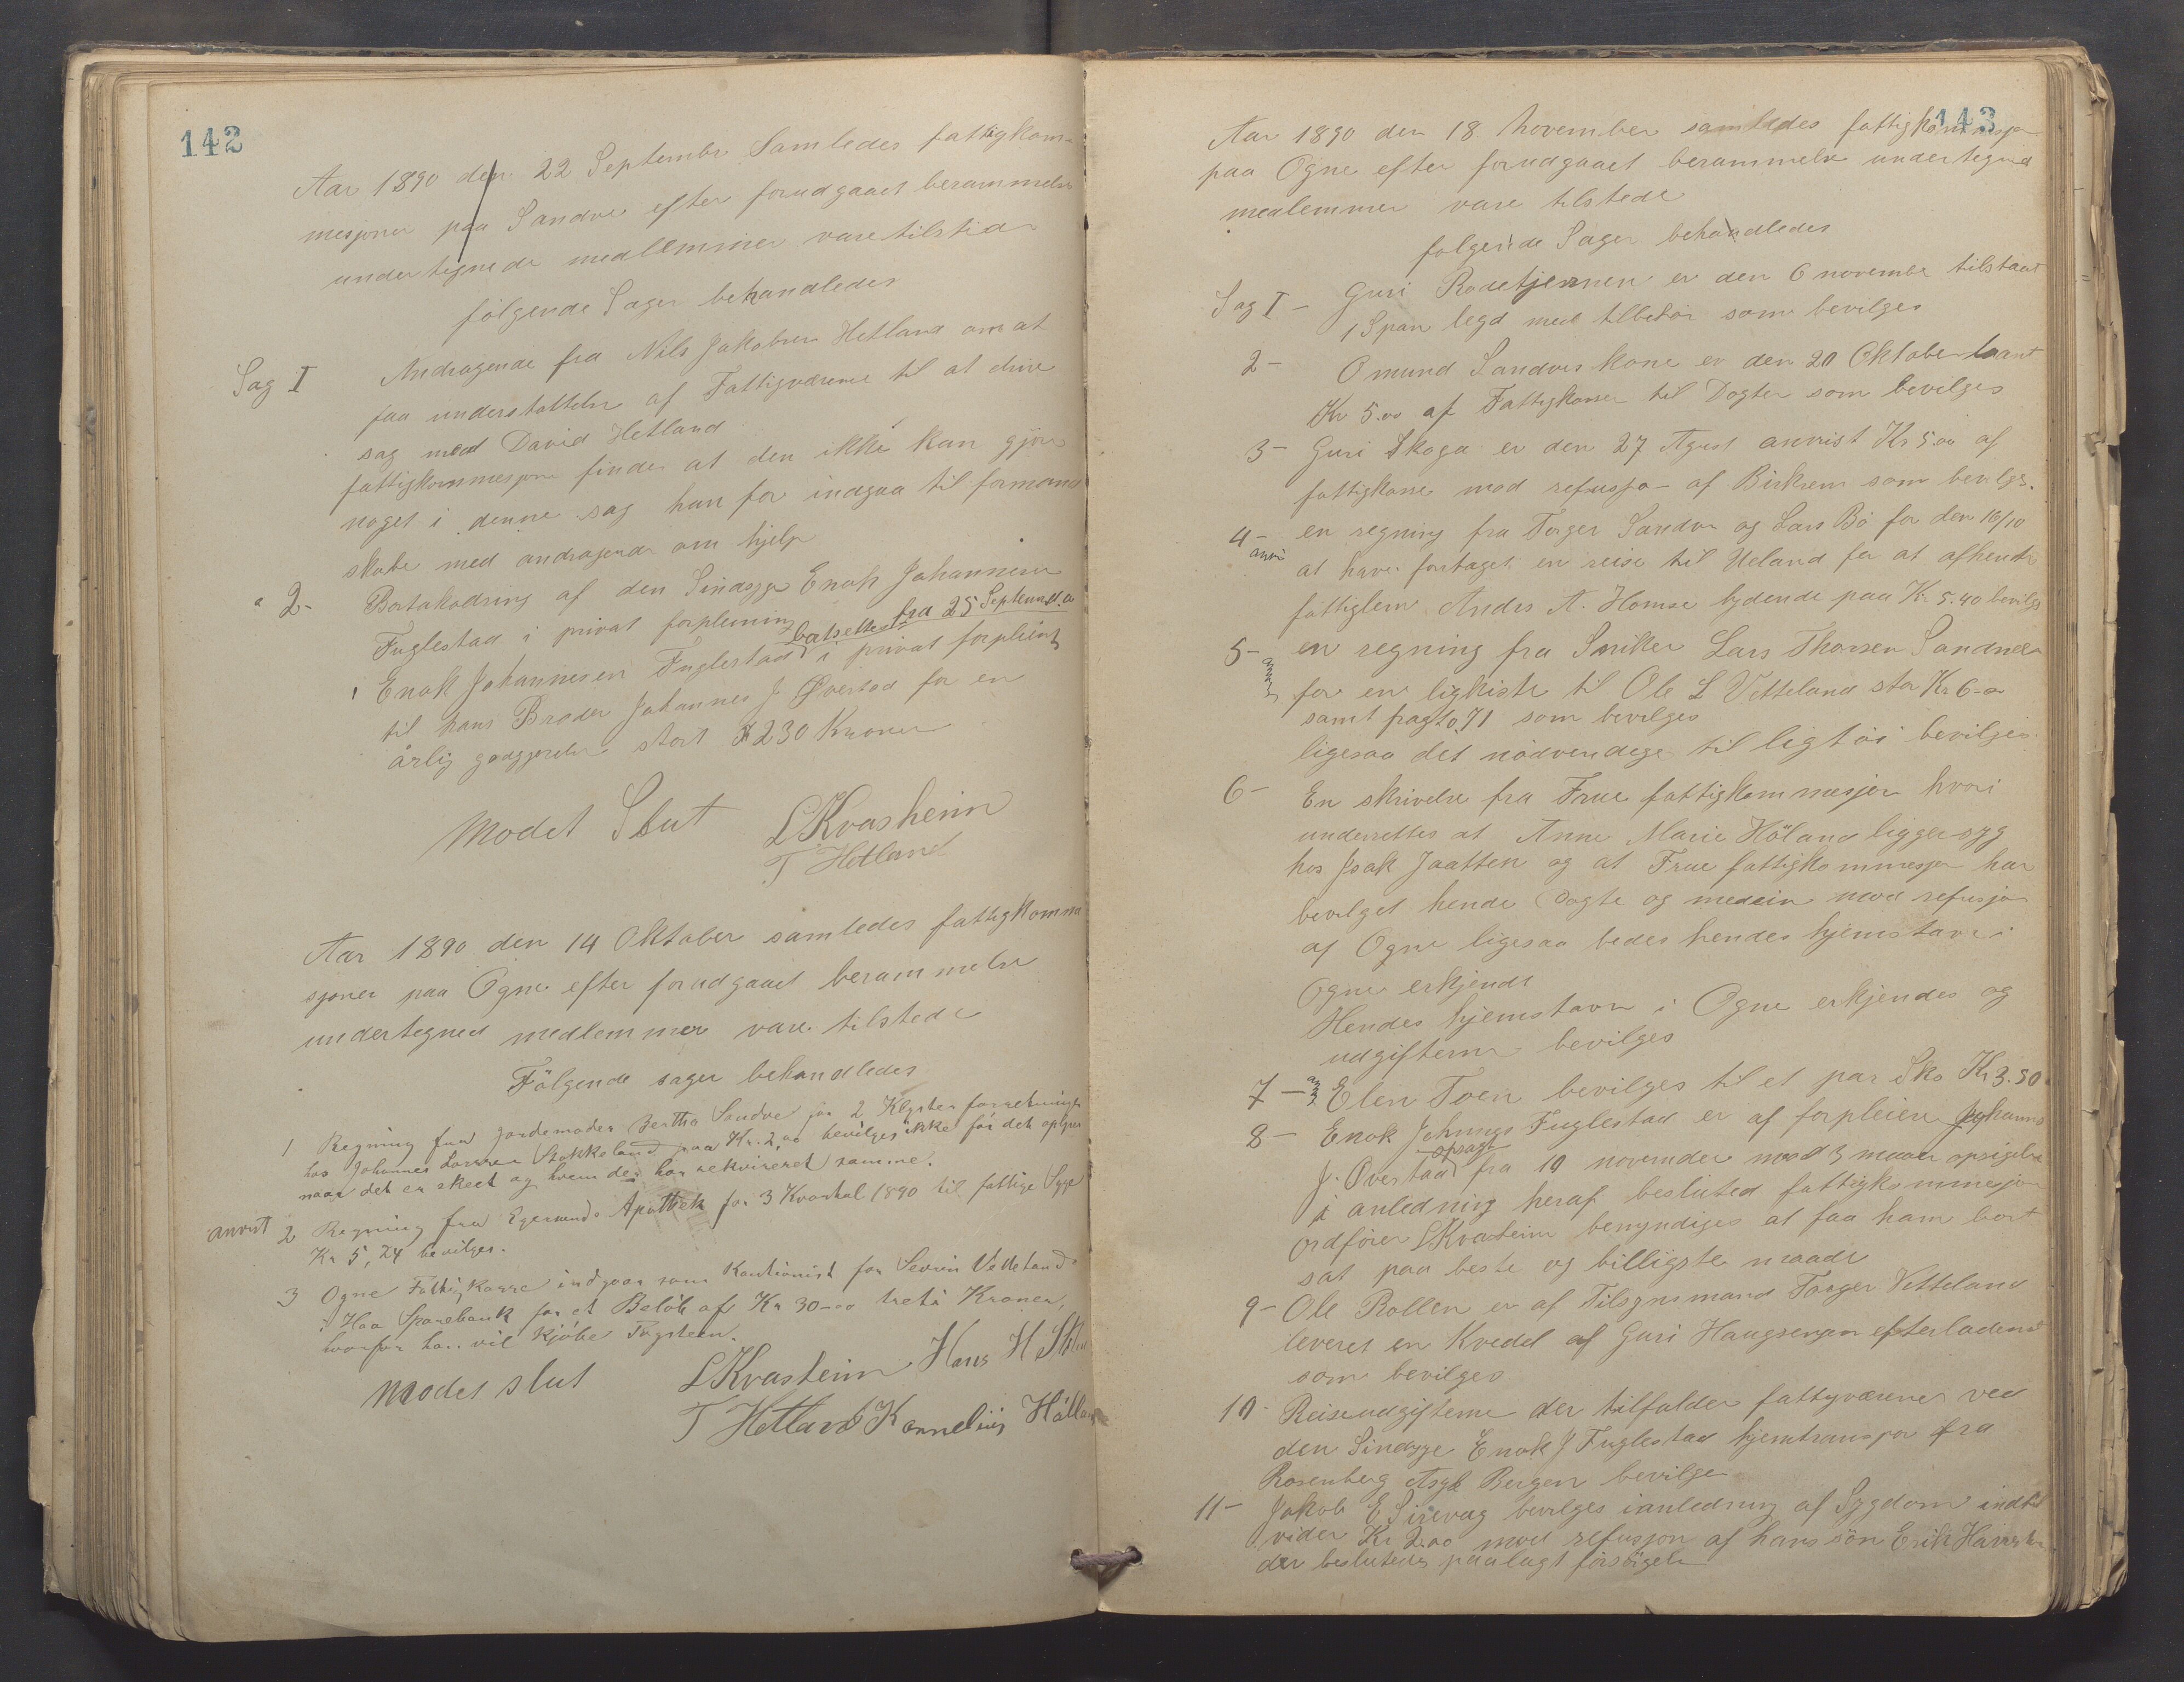 142
Aar 1890 den 22 Septembr Samledes fattigkom-
mesjonen paa Sandve efter forudgaaet berammelse
undertegnede medlemmer vare tilstede
følgende Sager behandledes
Sag I Andragende fra Nils Jakobsen Hetland om at
faa understøttelse af Fattigvæsenet til at drive
sag med David Hetland
fattigkommesjonen finder at den ikke kan gjøre
noget i denne sag han før indgaa til formand
skabe med andragende om hjelp
2- Bortakodring af den Sindsyge Enok Johannesen
Fuglestad i privat forpleining
bortsettes fra 25 Septembr d.a
Enok Johannesen Fuglestad i privat forpleining
til hans Broder Johannes J. Øvertad for en
årlig godtgjørelse stort 230 Kroner
Modet Slut L Kvasheim
T Hetland
Aar 1890 den 14 Oktober samledes fattigkomme
sjonen paa Ogne efter forudgaaet berammelse
undertegned medlemmer vare tilstede
Følgende sager behandledes
1 Regning fra Jordemoder Bertha Sandve for 2 Klyster forretninger
hos Johannes Larsen Stokkeland paa Kr. 2,00 bevilges ikke før det oplyses
naar det er skeet og hvem der har rekvireret samme.
anvist 2 Regning fra Egersunds Apothek for 3 Kvartal 1890 til fattige Syge
Kr 5,24 bevilges.
3 Ogne Fattigkasse indgaar som Kautionist for Sevrin Vetteland
i Haa Sparebank for et Beløb af Kr 30-00 treti Kroner,
hvorfor han vil Kjøbe Tagsteen.
Modet slut L Kvasheim Hans H
T Hetland Kornelius Hålland
143
Aar 1890 den 18 November samledes fattigkommesjon
paa Ogne efter forudgaaet berammelse undertegned
medlemmer vare tilstede
følgende Sager behandledes
Sag I - Guri Rodetjernen er den 6 novembr tilstaat
1 Span legd med tilbehør som bevilges
2- Omund Sandves kone er den 20 Oktober laant
Kr 5.00 af Fattigkassen til Dogter som bevilges
3- Guri Skoga er den 27 Agust anvist Kr 5.00 af
fattigkasse mod refusjo- af Birkrem som bevilges.
4- anvi en regning fra Torger Sandve og Lars Bø for den 16/10
at have fortaget en reise til Ueland for at afhente
fattiglem Andrs A. Homse lydende paa Kr. 5.40 bevilges
5- en regning fra Sniker Lars Thorsen Sandnes
for en ligkiste til Ole L Vetteland stor Kr 6-
samt fragt 0.71 som bevilges
ligesaa det nødvendige til ligtøi bevilges
6- En skrivelse fra Frue fattigkommesjon hvori
underrettes at Anne Marie Höland ligger syg
hos Isak Jaatten og at Frue fattigkommesjon har
bevilget hende Dogte og medsin mod refusjon
af Ogne ligesaa bedes hendes hjemstavn i
Ogne erkjendt
Hendes hjemstavn i Ogne erkjendes og
udgifterne bevilges
7- Elen Toen bevilges til et par Sko Kr 3.50
8- Enok Johnngs Fuglestad er af forpleiere Johanns
J. Øverstad opsagt fra 19 november med 3 maaner opsigelse
i anledning heraf besluted fattigkommesjon
ordfører L Kvasheim benyndiges at faa ham bort
sat paa beste og billigste maade
9- Ole Rollen er af Tilsynsmand Torger Vetteland
leveret en Kvedel af Guri Haugsengen efterladend
som bevilges
10- Reiseudgifterne der tilfalder fattigvæsenet ved
den Sindsyge Enok J Fuglestad hjemtranspor fra
Rosenberg Asyl Bergen bevilges
11- Jakob E Sirevag bevilges i anledning af Sygdom indtil
vider Kr 2.00 mod refusjon af hans søn Erik
der besluttedes paalagt forsørgelse